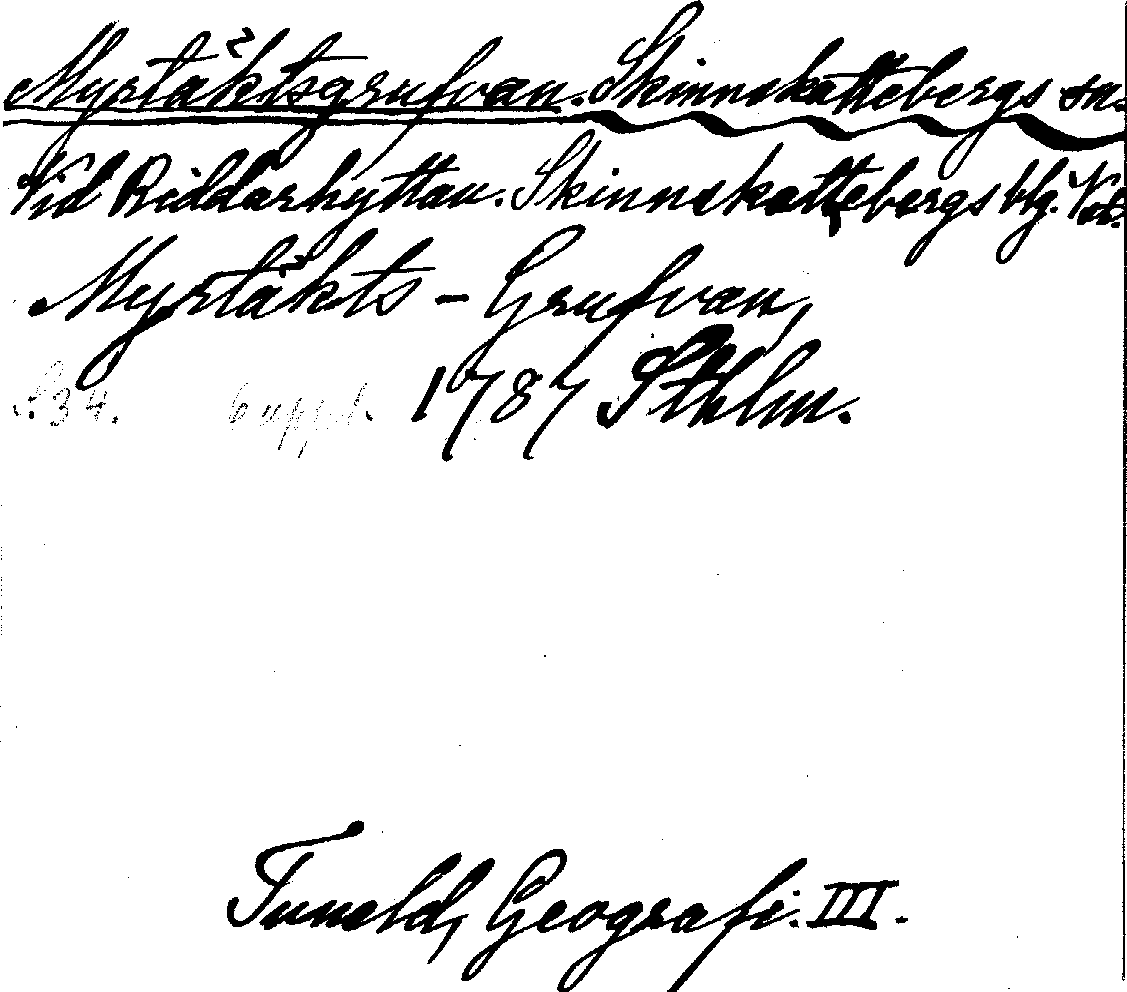 Myrtäktsgrufvan. Skinnskattebergs sn.
Vid Riddarhyttan. Skinnskattebergs blg. Vstm.
Myrtäkts-Grufvan,
S. 34. 6 uppl. 1787 Sthlm.
Tuneld, Geografi. III.